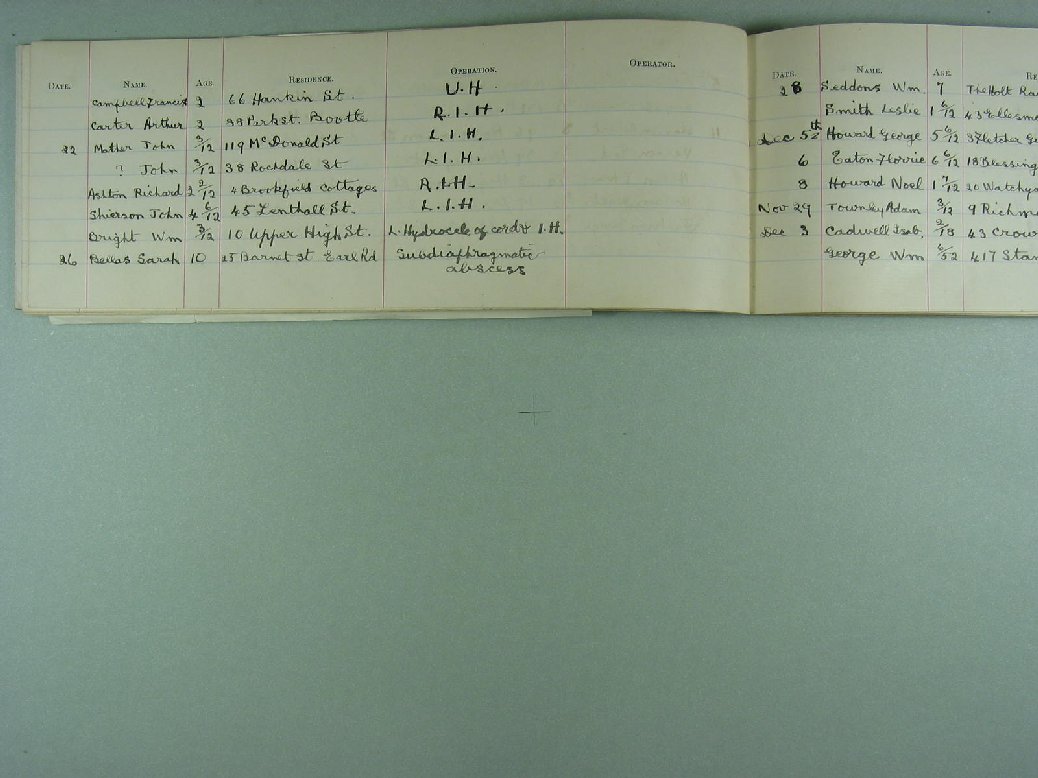 DATE. NAME. AGE. RESIDENCE. OPERATION. OPERATOR.
Campbell Francis 2 66 Hankin St. U.H.
Carter Arthur 2 99 Perk st. Bootle R.I.H.
22 Mather John 3/12 119 McDonald St L.I.H.
? John 3/12 38 Rochdale St L.I.H.
Ashton Richard 2 2/12 4 Brookfield Cottages R.I.H.
Shierson John 4 6/12 45 Lenthall St. L.I.H.
Bright Wm 3/12 10 Upper High St. L. Hydrocele of cord & I.H.
26 Bellas Sarah 10 25 Barnet St Earl Rd Subdiaphragmatic
abscess
DATE. NAME. AGE. RE
28 Seddons Wm. 7 The Holt Ra
Smith Leslie 1 6/12 43 Ellesme
Dec 5th Howard George 5 6/12 3 Fletcher G
6 Eaton Florrie 6 6/12 18 Blessing
8 Howard Noel 1 7/12 20 Watchya
Nov 29 Townley Adam 3/12 9 Richmo
Dec 3 Cadwell Isab. 43 Crow
George Wm 417 Stan